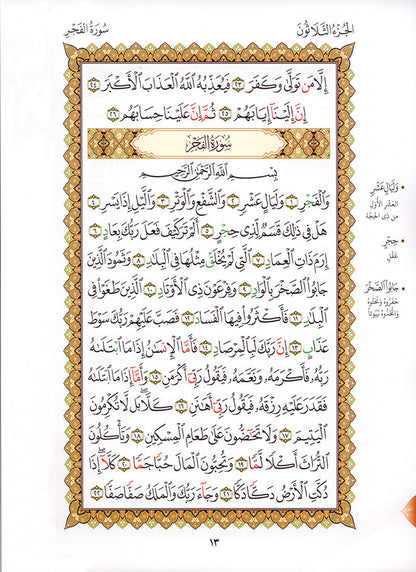 سُورَةُ الفَجْرِ
الجُزءُ الثَّلَاثُونَ
إِلَّا مَن تَوَلَّىٰ وَكَفَرَ ٢٣ فَيُعَذِّبُهُ ٱللَّهُ ٱلْعَذَابَ ٱلْأَكْبَرَ ٢٤
إِنَّ إِلَيْنَآ إِيَابَهُمْ ٢٥ ثُمَّ إِنَّ عَلَيْنَا حِسَابَهُم ٢٦
سُورَةُ الفَجْرِ
بِسْمِ ٱللَّهِ ٱلرَّحْمَٰنِ ٱلرَّحِيمِ
وَٱلْفَجْرِ ١ وَلَيَالٍ عَشْرٍ ٢ وَٱلشَّفْعِ وَٱلْوَتْرِ ٣ وَٱلَّيْلِ إِذَا يَسْرِ ٤
هَلْ فِى ذَٰلِكَ قَسَمٌ لِّذِى حِجْرٍ ٥ أَلَمْ تَرَ كَيْفَ فَعَلَ رَبُّكَ بِعَادٍ ٦
إِرَمَ ذَاتِ ٱلْعِمَادِ ٧ ٱلَّتِى لَمْ يُخْلَقْ مِثْلُهَا فِى ٱلْبِلَٰدِ ٨ وَثَمُودَ ٱلَّذِينَ
جَابُوا۟ ٱلصَّخْرَ بِٱلْوَادِ ٩ وَفِرْعَوْنَ ذِى ٱلْأَوْتَادِ ١٠ ٱلَّذِينَ طَغَوْا۟ فِى
ٱلْبِلَٰدِ ١١ فَأَكْثَرُوا۟ فِيهَا ٱلْفَسَادَ ١٢ فَصَبَّ عَلَيْهِمْ رَبُّكَ سَوْطَ
عَذَابٍ ١٣ إِنَّ رَبَّكَ لَبِٱلْمِرْصَادِ ١٤ فَأَمَّا ٱلْإِنسَٰنُ إِذَا مَا ٱبْتَلَىٰهُ
رَبُّهُۥ فَأَكْرَمَهُۥ وَنَعَّمَهُۥ فَيَقُولُ رَبِّىٓ أَكْرَمَنِ ١٥ وَأَمَّآ إِذَا مَا ٱبْتَلَىٰهُ
فَقَدَرَ عَلَيْهِ رِزْقَهُۥ فَيَقُولُ رَبِّىٓ أَهَٰنَنِ ١٦ كَلَّا بَل لَّا تُكْرِمُونَ
ٱلْيَتِيمَ ١٧ وَلَا تَحَٰٓضُّونَ عَلَىٰ طَعَامِ ٱلْمِسْكِينِ ١٨ وَتَأْكُلُونَ
ٱلتُّرَاثَ أَكْلًا لَّمًّا ١٩ وَتُحِبُّونَ ٱلْمَالَ حُبًّا جَمًّا ٢٠ كَلَّآ إِذَا
دُكَّتِ ٱلْأَرْضُ دَكًّا دَكًّا ٢١ وَجَآءَ رَبُّكَ وَٱلْمَلَكُ صَفًّا صَفًّا ٢٢
وَلَيَالٍ عَشْرٍ
العَشْرِ الأُوَلِ
من ذي الحجَّة
حِجْرٍ
عَقْلٍ
جَابُوا۟ ٱلصَّخْرَ
حَفَرُوهُ وَنَحَتُوهُ
وَاتَّخَذُوهُ بُيُوتاً
١٣